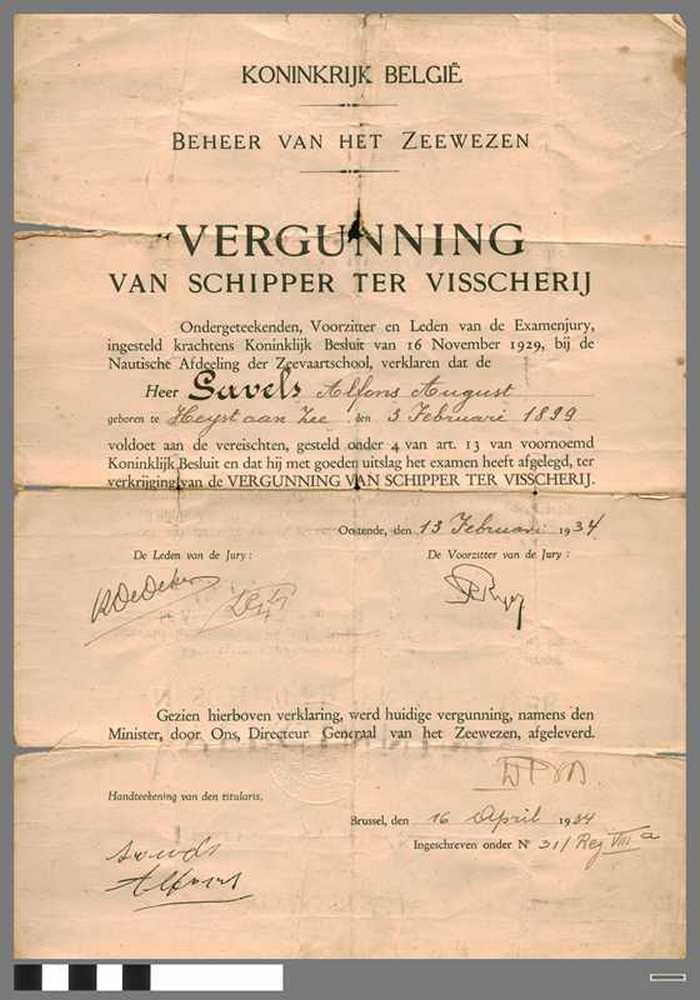 KONINKRIJK BELGIË
BEHEER VAN HET ZEEWEZEN
VERGUNNING
VAN SCHIPPER TER VISSCHERIJ
Ondergeteekenden, Voorzitter en Leden van de Examenjury,
ingesteld krachtens Koninklijk Besluit van 16 November 1929, bij de
Nautische Afdeeling der Zeevaartschool, verklaren dat de
Heer Savels Alfons August
geboren te Heyst aan Zee den 3 Februari 1899
voldoet aan de vereischten, gesteld onder 4 van art. 13 van voornoemd
Koninklijk Besluit en dat hij met goeden uitslag het examen heeft afgelegd, ter
verkrijging van de VERGUNNING VAN SCHIPPER TER VISSCHERIJ.
Oostende, den 13 Februari 1934
De Leden van de Jury: De Voorzitter van de Jury:
Gezien hierboven verklaring, werd huidige vergunning, namens den
Minister, door Ons, Directeur Generaal van het Zeewezen, afgeleverd.
Handteekening van den titularis,
Brussel, den 16 April 1934
Ingeschreven onder N° 31/Reg VIII a
Alfons